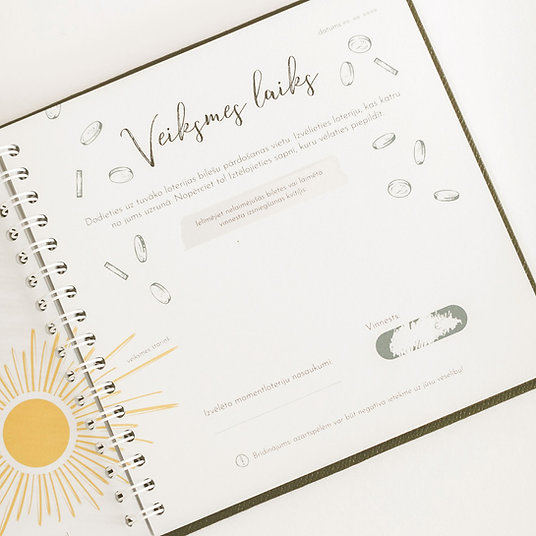 datums
Veiksmes laiks
Dodieties uz tuvāko loterijas biļešu pārdošanas vietu. Izvēlieties loteriju, kas katru
no jums uzrunā. Nopērciet to! Iztēlojieties sapni, kuru vēlaties piepildīt.
Ielīmējiet nelaimējušās biļetes vai laimēto
vinnesta izsniegšanas kvītis.
veiksmes stariņš
Vinnests:
€
Izvēlēto momentloteriju nosaukumi:
Brīdinājums: azartspēlēm var būt negatīva ietekme uz jūsu veselību!